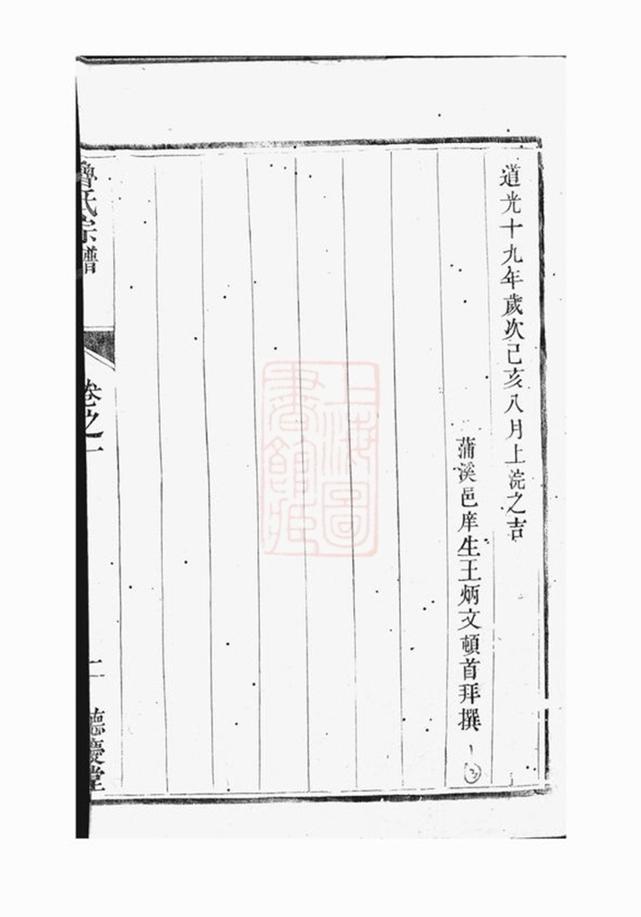 道光十九年歲次己亥八月上浣之吉
蒲溪邑庠生王炳文頓首拜撰
上海圖書館藏
魯氏宗譜
卷之一
二
德慶堂